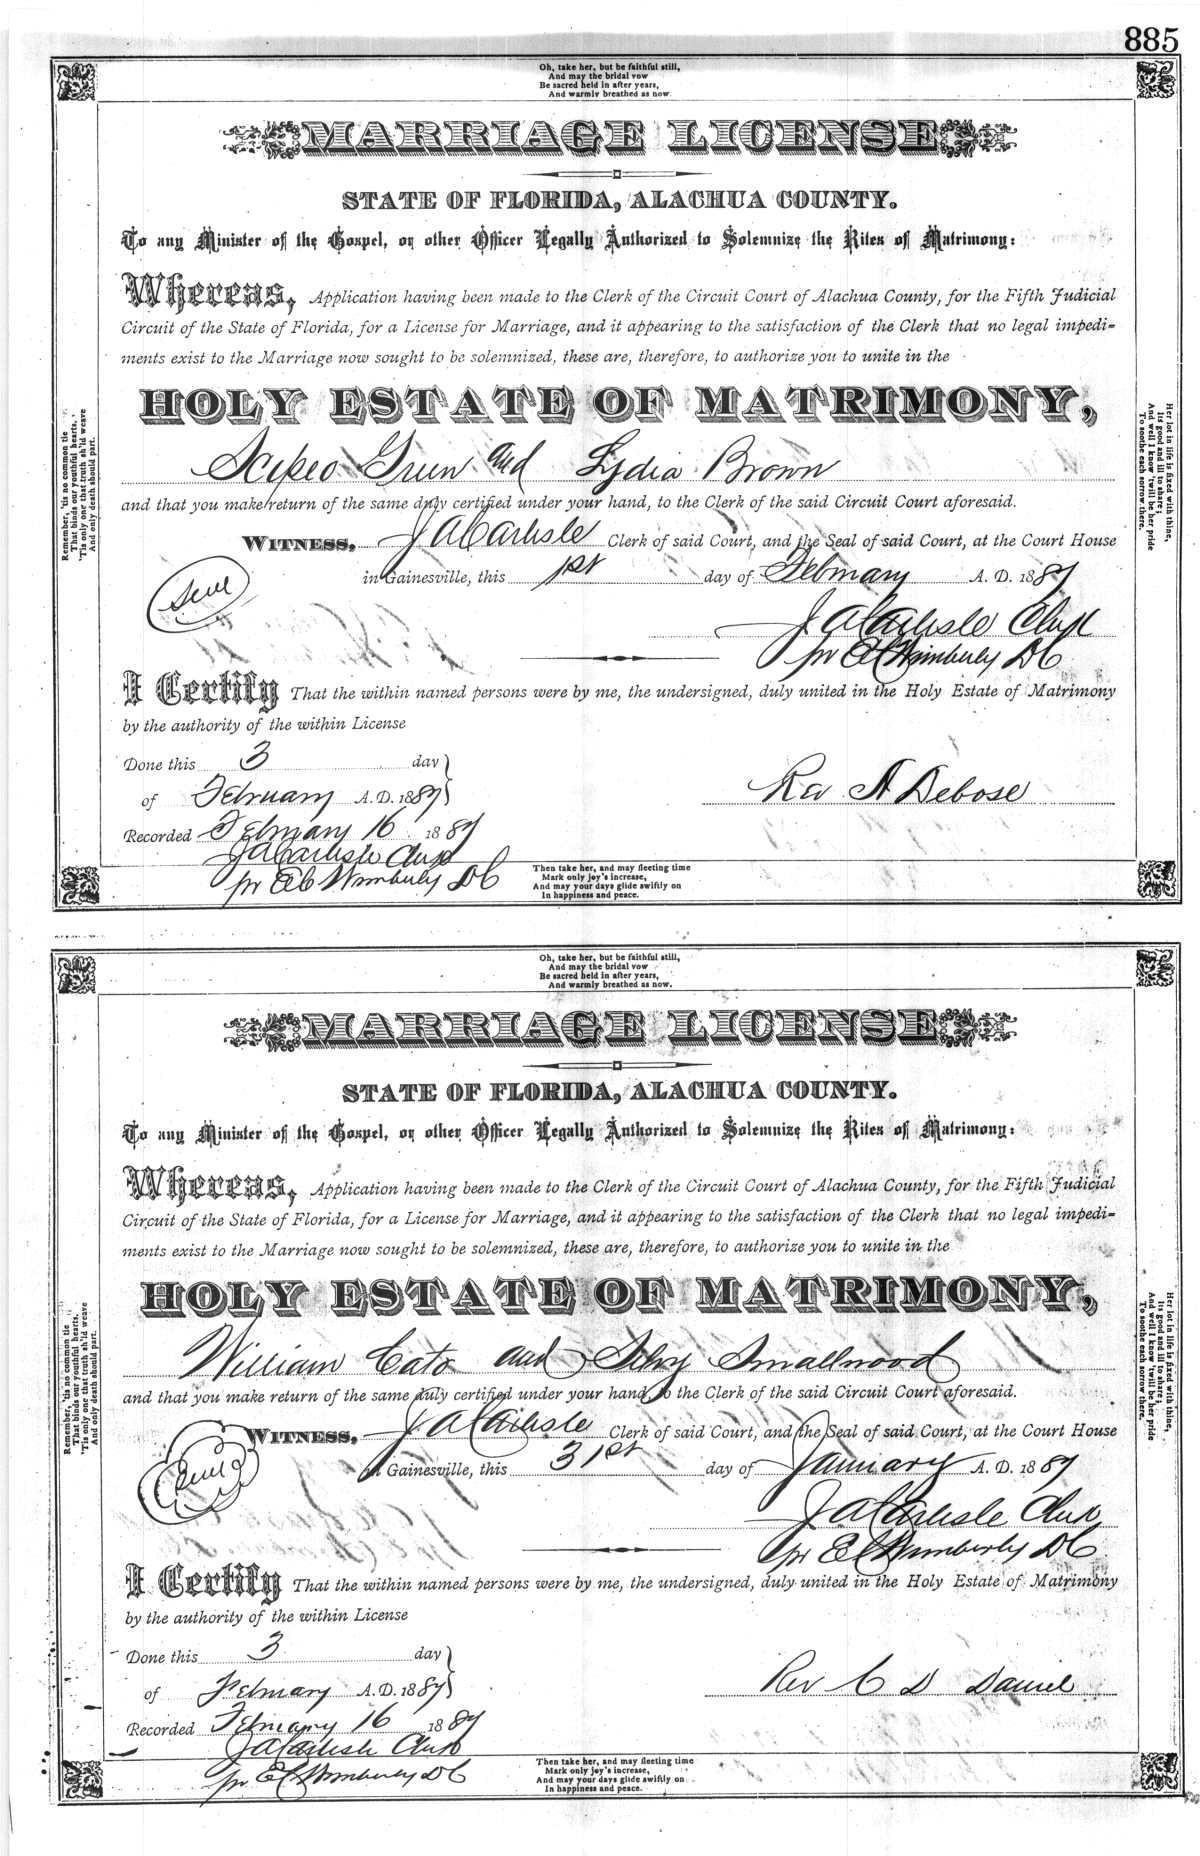 885
Oh, take her, but be faithful still,
And may the bridal vow
Be sacred held in after years,
And warmly breathed as now.
MARRIAGE LICENSE
STATE OF FLORIDA, ALACHUA COUNTY.
To any Minister of the Gospel, or other Officer Legally Authorized to Solemnize the Rites of Matrimony:
Whereas, Application having been made to the Clerk of the Circuit Court of Alachua County, for the Fifth Judicial
Circuit of the State of Florida, for a License for Marriage, and it appearing to the satisfaction of the Clerk that no legal impedi-
ments exist to the Marriage now sought to be solemnized, these are, therefore, to authorize you to unite in the
HOLY ESTATE OF MATRIMONY,
Scipeo Green and Lydia Brown
and that you make return of the same duly certified under your hand, to the Clerk of the said Circuit Court aforesaid.
WITNESS, J A Carlisle Clerk of said Court, and the Seal of said Court, at the Court House
in Gainesville, this 1st day of February A. D. 1887
Seal
J A Carlisle Clerk
pr E C Wimberly DC
I Certify That the within named persons were by me, the undersigned, duly united in the Holy Estate of Matrimony
by the authority of the within License
Done this 3 day
of February A. D. 1887
Rev A Debose
Recorded February 16 1887
J A Carlisle Clerk
pr E C Wimberly DC
Then take her, and may fleeting time
Mark only joy's increase,
And may your days glide swiftly on
In happiness and peace.
Remember, 'tis no common tie
That binds our youthful hearts,
'Tis only one that truth sh'ld weave
And only death should part.
Her lot in life is fixed with thine,
Its good and ill to share;
And well I know 'twill be her pride
To soothe each sorrow there.
Oh, take her, but be faithful still,
And may the bridal vow
Be sacred held in after years,
And warmly breathed as now.
MARRIAGE LICENSE
STATE OF FLORIDA, ALACHUA COUNTY.
To any Minister of the Gospel, or other Officer Legally Authorized to Solemnize the Rites of Matrimony:
Whereas, Application having been made to the Clerk of the Circuit Court of Alachua County, for the Fifth Judicial
Circuit of the State of Florida, for a License for Marriage, and it appearing to the satisfaction of the Clerk that no legal impedi-
ments exist to the Marriage now sought to be solemnized, these are, therefore, to authorize you to unite in the
HOLY ESTATE OF MATRIMONY,
William Cato and Silvy Smallwood
and that you make return of the same duly certified under your hand, to the Clerk of the said Circuit Court aforesaid.
WITNESS, J A Carlisle Clerk of said Court, and the Seal of said Court, at the Court House
in Gainesville, this 31st day of January A. D. 1887
Seal
J A Carlisle Clerk
pr E C Wimberly DC
I Certify That the within named persons were by me, the undersigned, duly united in the Holy Estate of Matrimony
by the authority of the within License
Done this 3 day
of February A. D. 1887
Rev C D Daniel
Recorded February 16 1887
J A Carlisle Clerk
pr E C Wimberly DC
Then take her, and may fleeting time
Mark only joy's increase,
And may your days glide swiftly on
In happiness and peace.
Remember, 'tis no common tie
That binds our youthful hearts,
'Tis only one that truth sh'ld weave
And only death should part.
Her lot in life is fixed with thine,
Its good and ill to share;
And well I know 'twill be her pride
To soothe each sorrow there.